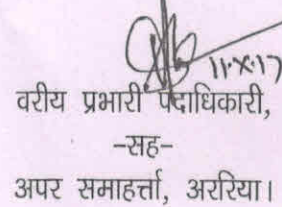 11.X.17
वरीय प्रभारी पदाधिकारी,
-सह-
अपर समाहर्त्ता, अररिया।